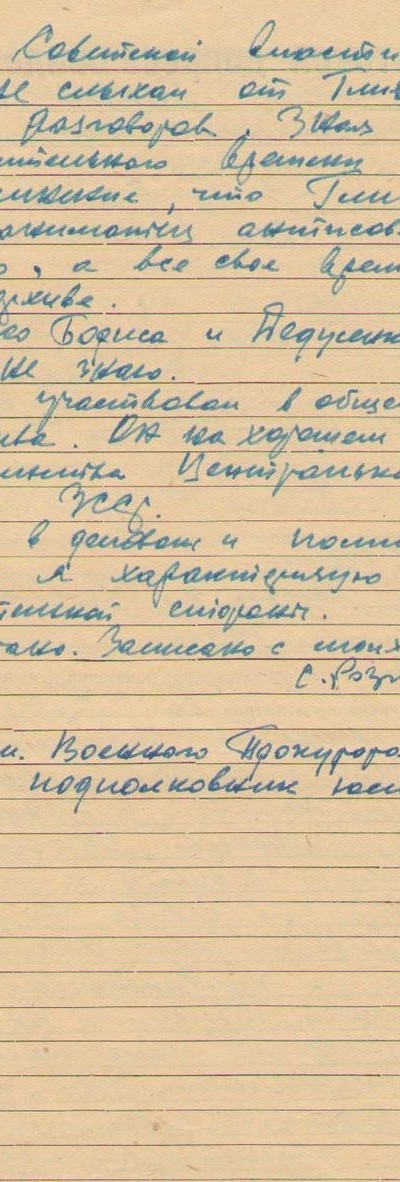 Советской власти
не слыхал от Гли
разговоров. Зная
ительного времени
, что Гли
антисов
о, а все свое врем
архиве.
Бориса и Недужен
не знаю.
участвовал в обще
ива. Он на хорошем
Центрально
ЗССР.
в деловом и поли
я характеризую
тельной стороны.
тано. Записано с моих
С. Розе
м. Военного Прокурора
подполковник юст